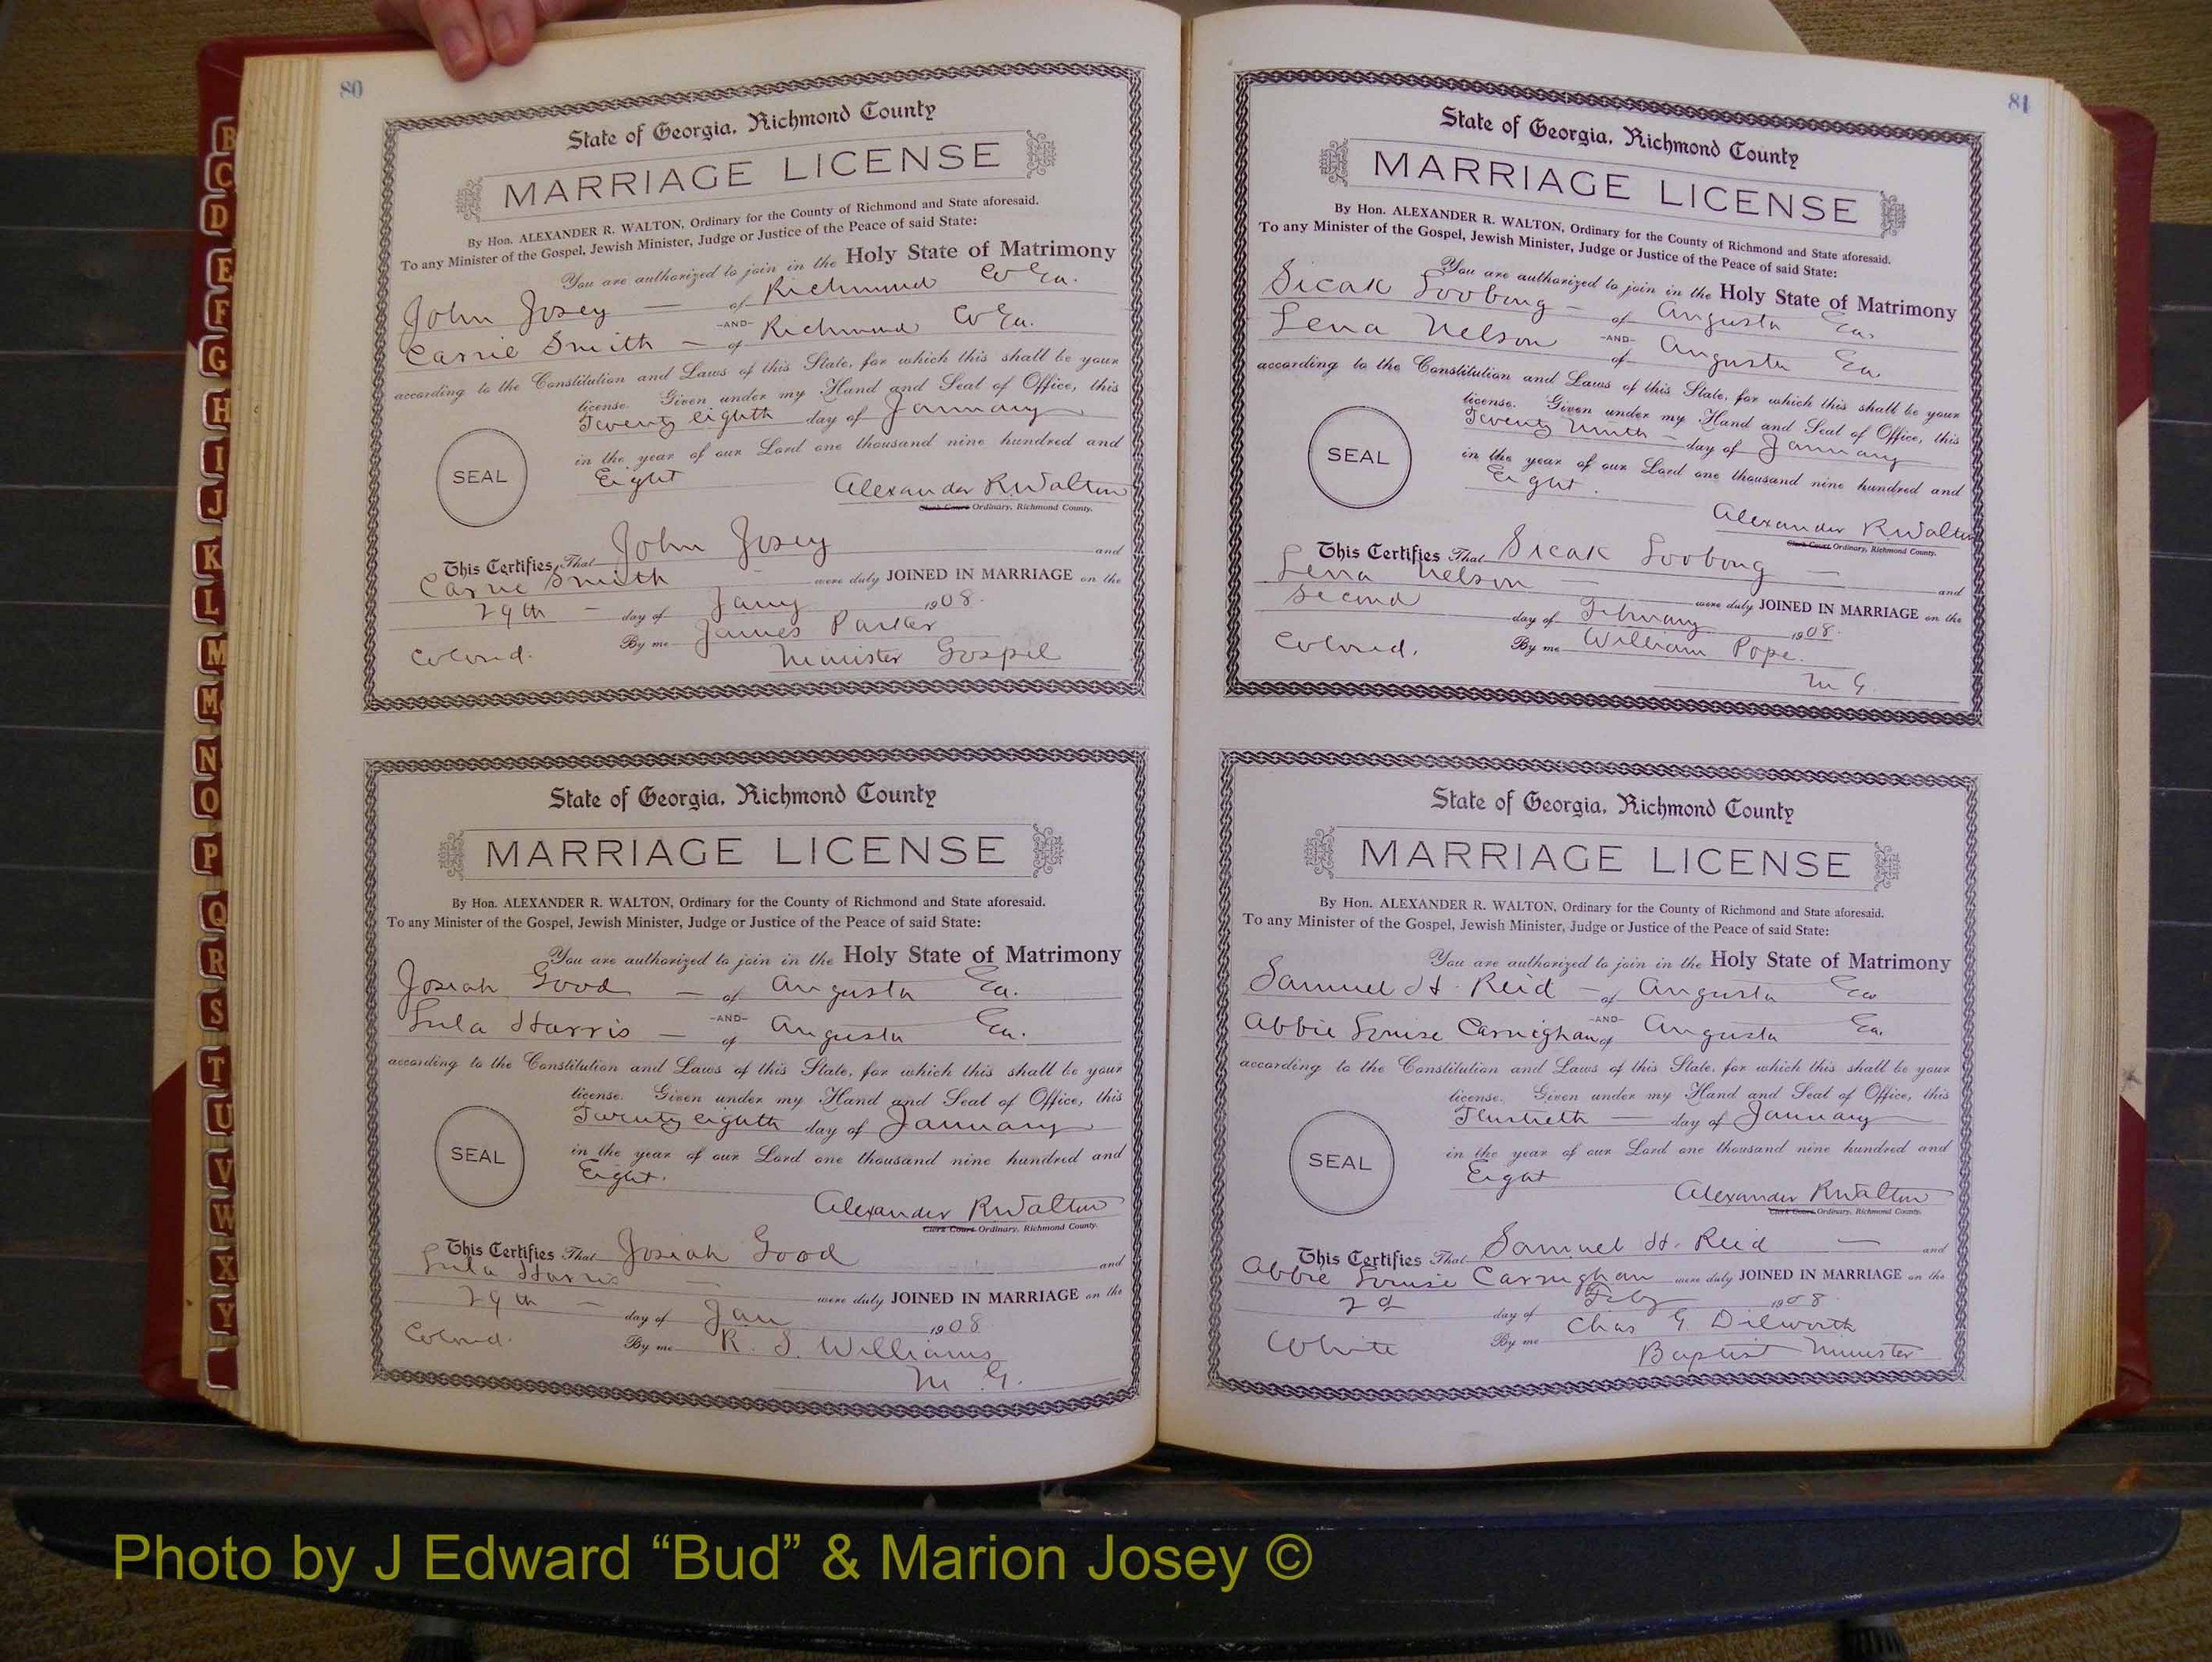 80
State of Georgia, Richmond County
MARRIAGE LICENSE
By Hon. ALEXANDER R. WALTON, Ordinary for the County of Richmond and State aforesaid.
To any Minister of the Gospel, Jewish Minister, Judge or Justice of the Peace of said State:
You are authorized to join in the Holy State of Matrimony
John Josey — of Richmond Co Ga.
-AND-
Carrie Smith — of Richmond Co Ga.
according to the Constitution and Laws of this State, for which this shall be your
license. Given under my Hand and Seal of Office, this
Twenty eighth day of January
in the year of our Lord one thousand nine hundred and
SEAL
Eight
Alexander R Walton
Clerk Court Ordinary, Richmond County.
This Certifies That John Josey and
Carrie Smith were duly JOINED IN MARRIAGE on the
29th — day of Jany 1908.
Colored. By me James Parker
Minister Gospel
State of Georgia, Richmond County
MARRIAGE LICENSE
By Hon. ALEXANDER R. WALTON, Ordinary for the County of Richmond and State aforesaid.
To any Minister of the Gospel, Jewish Minister, Judge or Justice of the Peace of said State:
You are authorized to join in the Holy State of Matrimony
Josiah Good — of Augusta Ga.
-AND-
Lula Harris — of Augusta Ga.
according to the Constitution and Laws of this State, for which this shall be your
license. Given under my Hand and Seal of Office, this
Twenty eighth day of January
in the year of our Lord one thousand nine hundred and
SEAL
Eight.
Alexander R Walton
Clerk Court Ordinary, Richmond County.
This Certifies That Josiah Good and
Lula Harris — were duly JOINED IN MARRIAGE on the
29th — day of Jan 1908
Colored. By me R. J. Williams
M. G.
81
State of Georgia, Richmond County
MARRIAGE LICENSE
By Hon. ALEXANDER R. WALTON, Ordinary for the County of Richmond and State aforesaid.
To any Minister of the Gospel, Jewish Minister, Judge or Justice of the Peace of said State:
You are authorized to join in the Holy State of Matrimony
— of Augusta Ga.
-AND-
Lena Nelson of Augusta Ga
according to the Constitution and Laws of this State, for which this shall be your
license. Given under my Hand and Seal of Office, this
Twenty Ninth — day of January
in the year of our Lord one thousand nine hundred and
SEAL
Eight.
Alexander R Walton
Clerk Court Ordinary, Richmond County.
This Certifies That — and
Lena Nelson — were duly JOINED IN MARRIAGE on the
Second day of February 1908.
Colored. By me William Pope.
M G.
State of Georgia, Richmond County
MARRIAGE LICENSE
By Hon. ALEXANDER R. WALTON, Ordinary for the County of Richmond and State aforesaid.
To any Minister of the Gospel, Jewish Minister, Judge or Justice of the Peace of said State:
You are authorized to join in the Holy State of Matrimony
Samuel H. Reid — of Augusta Ga
-AND-
Abbie Louise Carnighan of Augusta Ga.
according to the Constitution and Laws of this State, for which this shall be your
license. Given under my Hand and Seal of Office, this
Thirtieth — day of January
in the year of our Lord one thousand nine hundred and
SEAL
Eight
Alexander R Walton
Clerk Court Ordinary, Richmond County.
This Certifies That Samuel H. Reid — and
Abbie Louise Carnighan were duly JOINED IN MARRIAGE on the
2d day of Feby 1908
White By me Chas G. Dilworth
Baptist Minister
B
C
D
E
F
G
H
I
J
K
L
M
M
N
O
P
Q
R
S
T
U
V
W
X
Y
Photo by J Edward “Bud” & Marion Josey ©